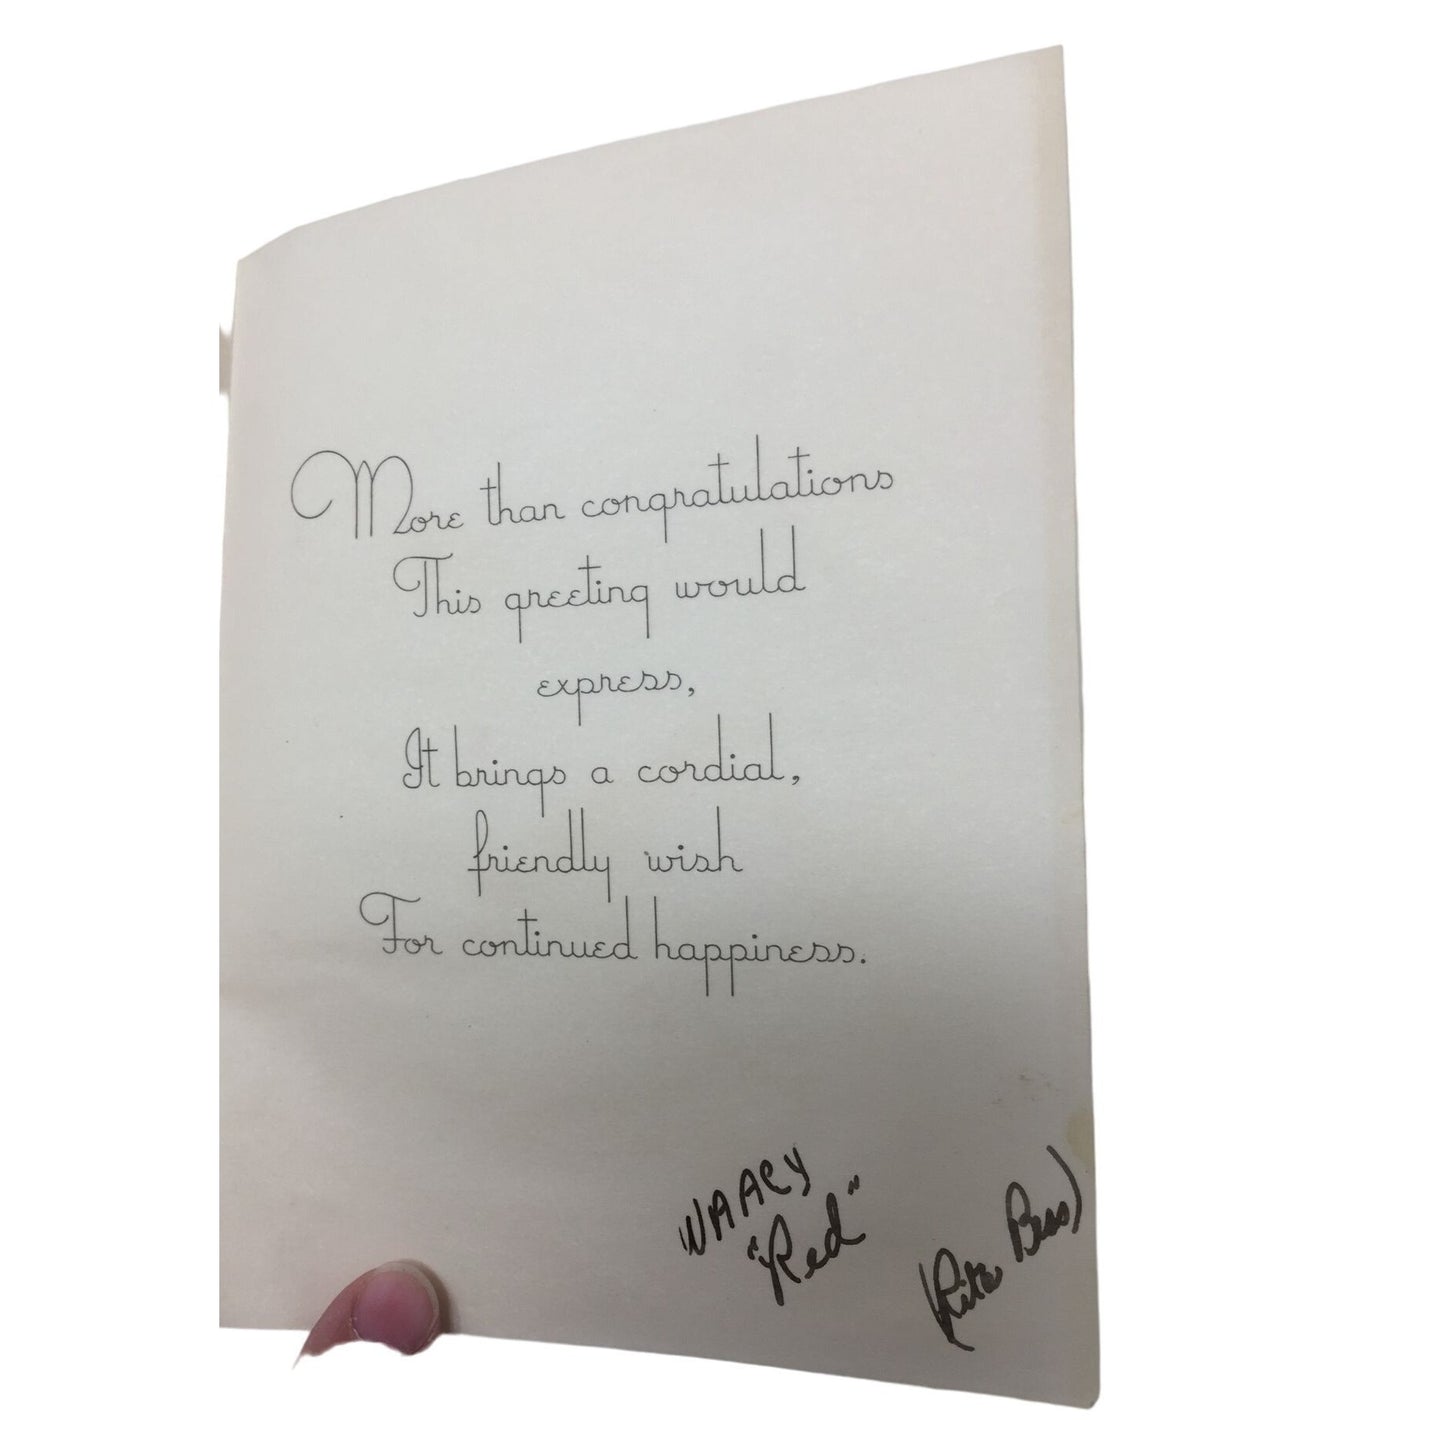 More than congratulations
This greeting would
express,
It brings a cordial,
friendly wish
For continued happiness.
"Red"
(Rita Bess)